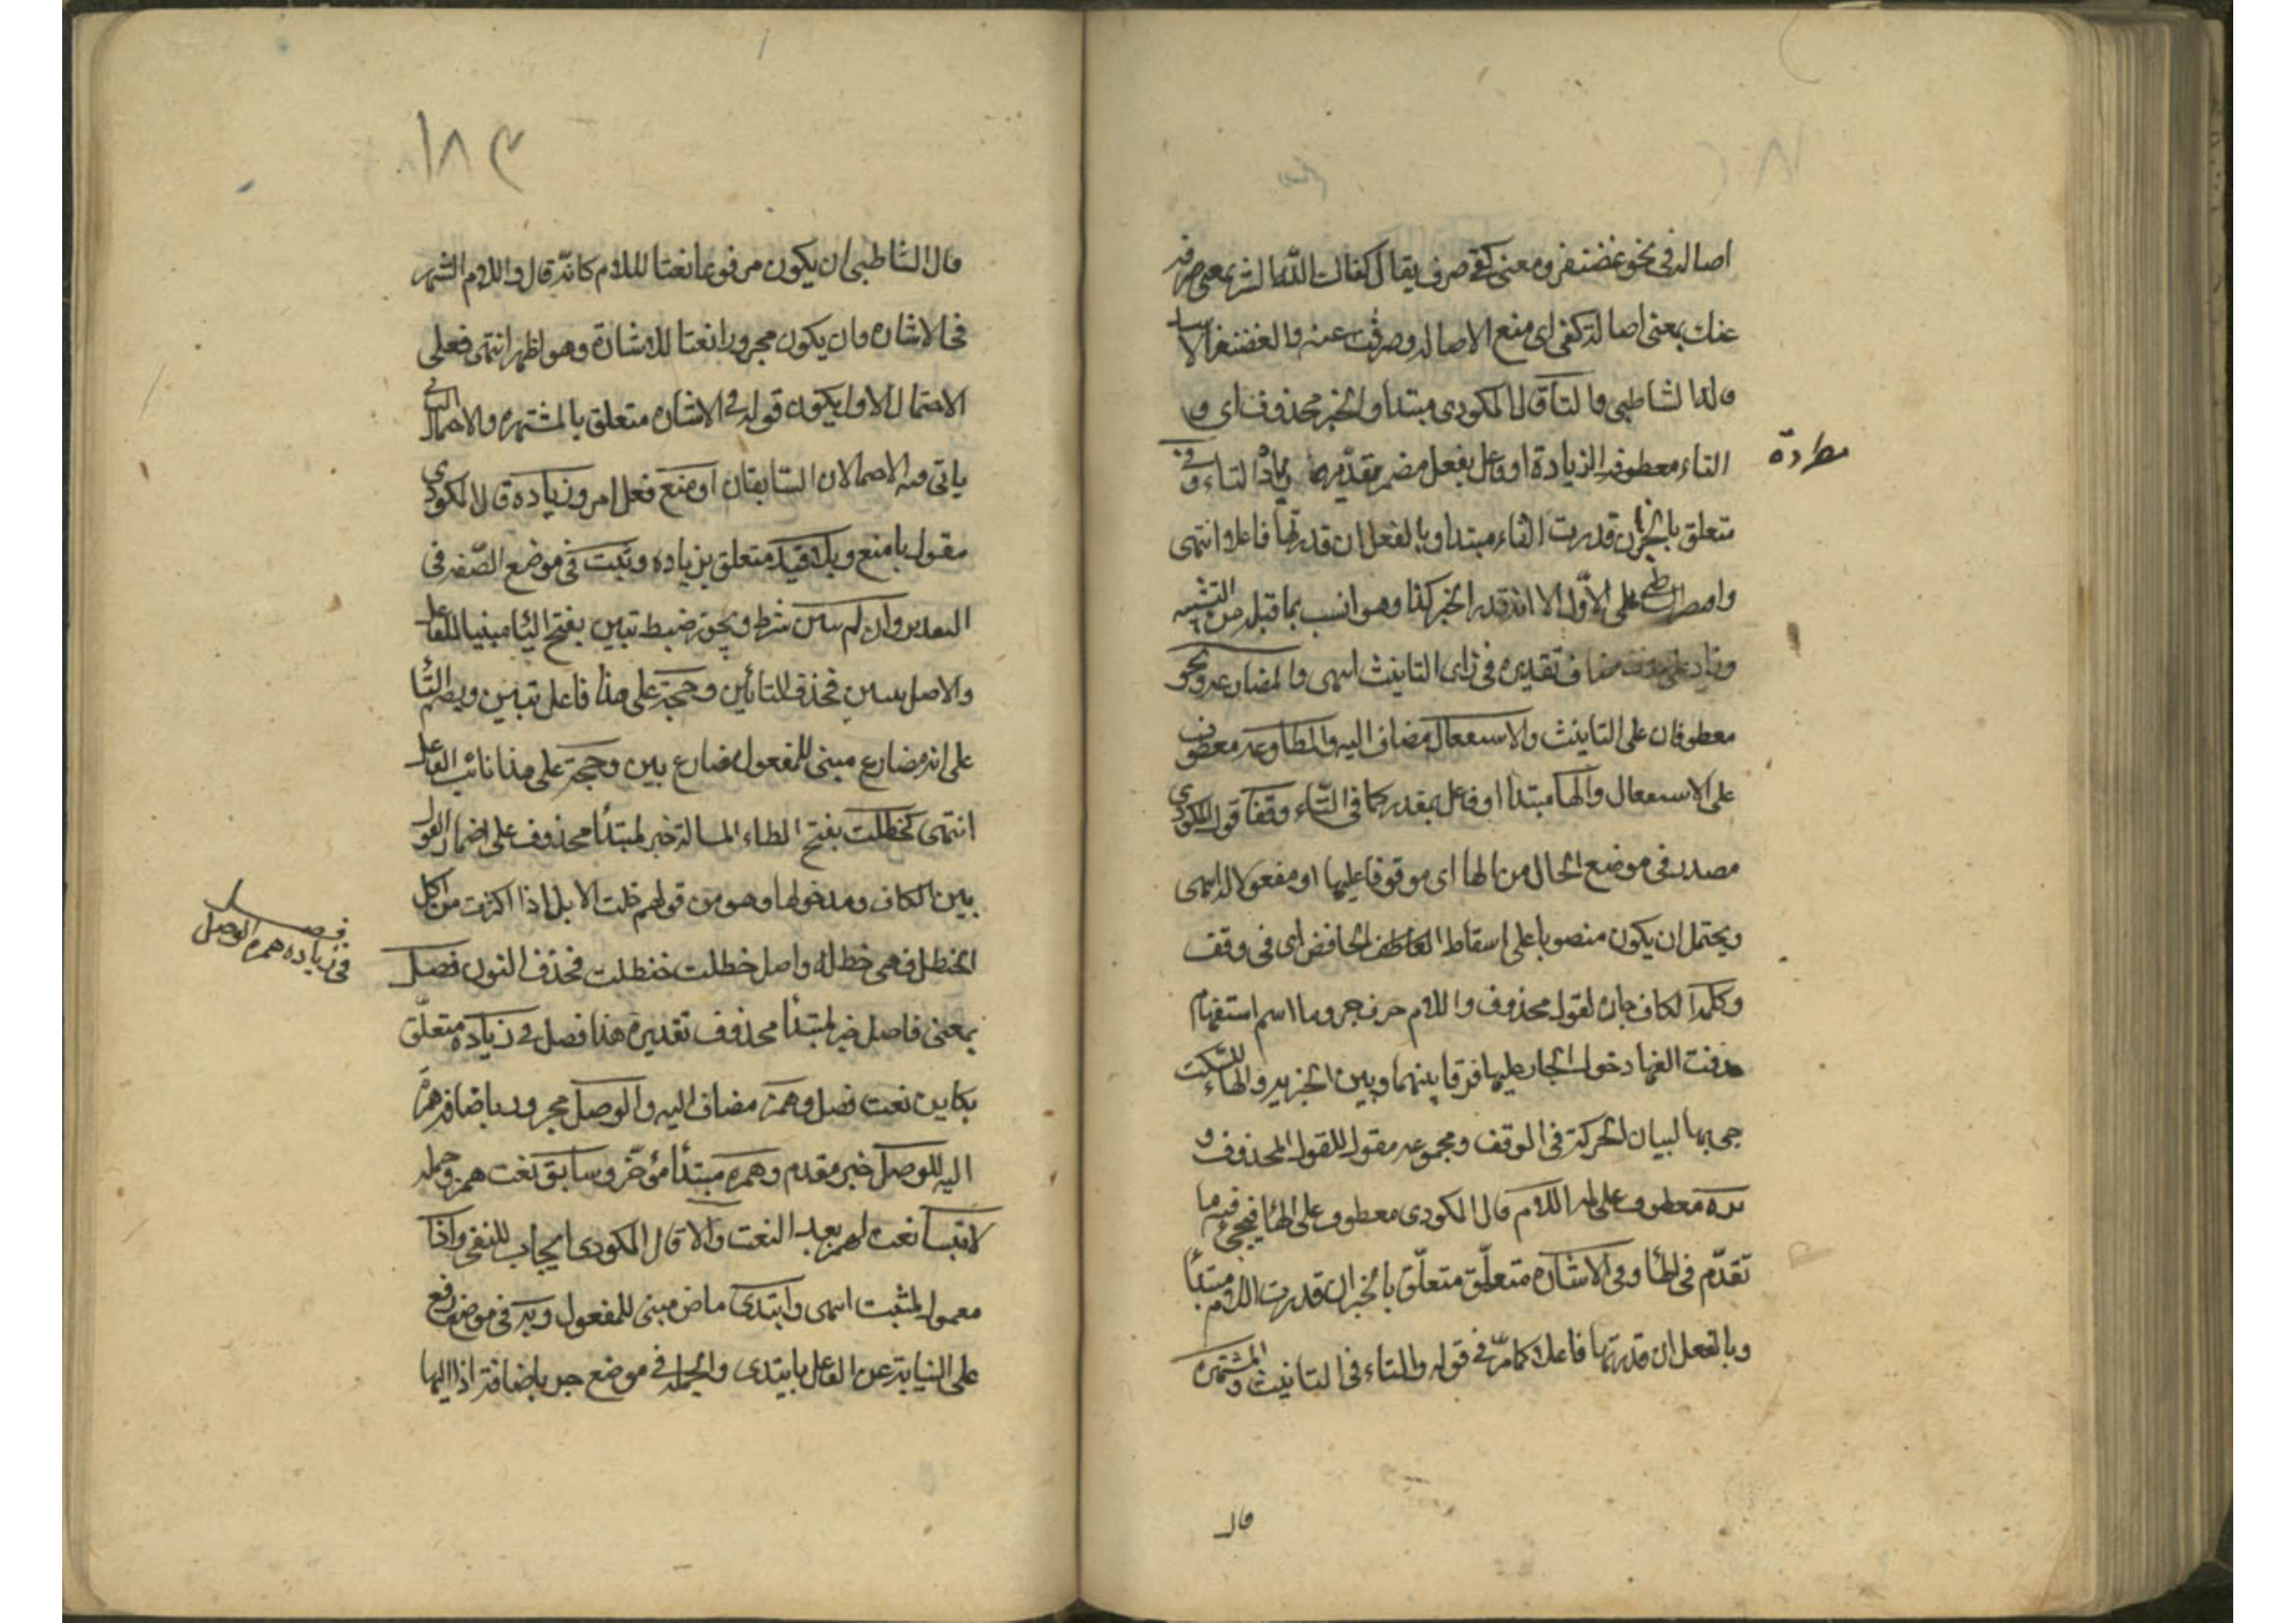 اصالة في نحو غضنفر ومعنى كفي صرف يقال كفات الله الشر بمعنى صرفه
عنك بمعنى اصالة كفى اى منع الاصالة وصرفت عنه والغضنفر الاسد
قاله الشاطبى والتا قال المكودى مبتدا والخبر محذوف اى و
التاء معطوفة الزيادة او فاعل بفعل مضمر تقديره تزاد التاء وفى
مطردة
متعلق بالخبر ان قدرت التاء مبتدا وبالفعل ان قدرتها فاعلا انتهى
واقتصر الشاطبى على الاول الا انه قدر الخبر كذا وهو انسب بما قبله من التشبيه
وزاد على حذف مضاف تقديره فى ذاى التانيث انتهى والمضارعة ونحو
معطوفان على التانيث والاستفعال مضاف اليه والمطاوعة معطوف
على الاستفعال والها مبتدا او فاعل بمقدر كما فى التاء وقفا قول المكودى
مصدر فى موضع الحال من الها اى موقوفا عليها او مفعولا له انتهى
ويحتمل ان يكون منصوبا على اسقاط العاطف الخافض اى فى وقف
وكلمه الكاف جارة لقول محذوف واللام حرف جر وما اسم استفهام
حذفت الفها دخول الجار عليها فرقا بينهما وبين الخبريه والهاء للسكت
جى بها لبيان الحركة فى الوقف ومجموعه مقول للقول المحذوف و
تره معطوف على لمه اللام قال المكودى معطوف على الها فيجئ فيه ما
تقدم فى الها وفى الاشاره متعلق متعلق بالخبر ان قدرت اللام مبتدا
وبالفعل ان قدرتها فاعلا كما مر فى قوله والتاء فى التانيث و المشتهره
قال
١٨٣
قال الشاطبى ان يكون مرفوعا نعتا لللام كانه قال واللام الشهير
فى الاشاره وان يكون مجرورا نعتا للاشارة وهو اظهر انتهى فعلى
الاحتمال الاول يكون قوله فى الاشاره متعلق بالمشتهره والاحتمال الثانى
ياتى فيه الاحتمالان السابقان او منع فعل امر وزياده قال المكودى
مفعول بامنع وبلا قيد متعلق بزياده وثبت فى موضع الصفه فى
التقدير وان لم تبين شرط وحجة ضبط تبين بفتح التا مبنيا للفاعل
والاصل تتبين فحذف التائين وحجة على هذا فاعل تبين وبضم التا
على انه مضارع مبنى للمفعول مضارع بين وحجة على هذا نائب الفاعل
انتهى كحظلت بفتح الظاء المسالة خبر لمبتدا محذوف على اضمار القول
بين الكاف ومدخولها وهو من قولهم حظلت الابل اذا اكثرت من اكل
الحنظل فهى حظله واصل حظلت حنظلت فحذف النون فصل
فصل
فى زياده همزه الوصل
بمعنى فاصل خبر لمبتدأ محذوف تقديره هذا فصل فى زياده متعلق
بكاين نعت فصل وهمز مضاف اليه والوصل مجرور باضافة همزة
اليه للوصل خبر مقدم وهمزه مبتدأ مؤخر وسابق نعت همز وجمله
لا تثبت نعت لهمز بعد النعت والا قال المكودى ايجاب للنفى واذا
معمول لتثبت انتهى وابتدى ماض مبنى للمفعول وبه فى موضع رفع
على النيابة عن الفاعل بابتدى والجمله فى موضع جر باضافة اذا اليها